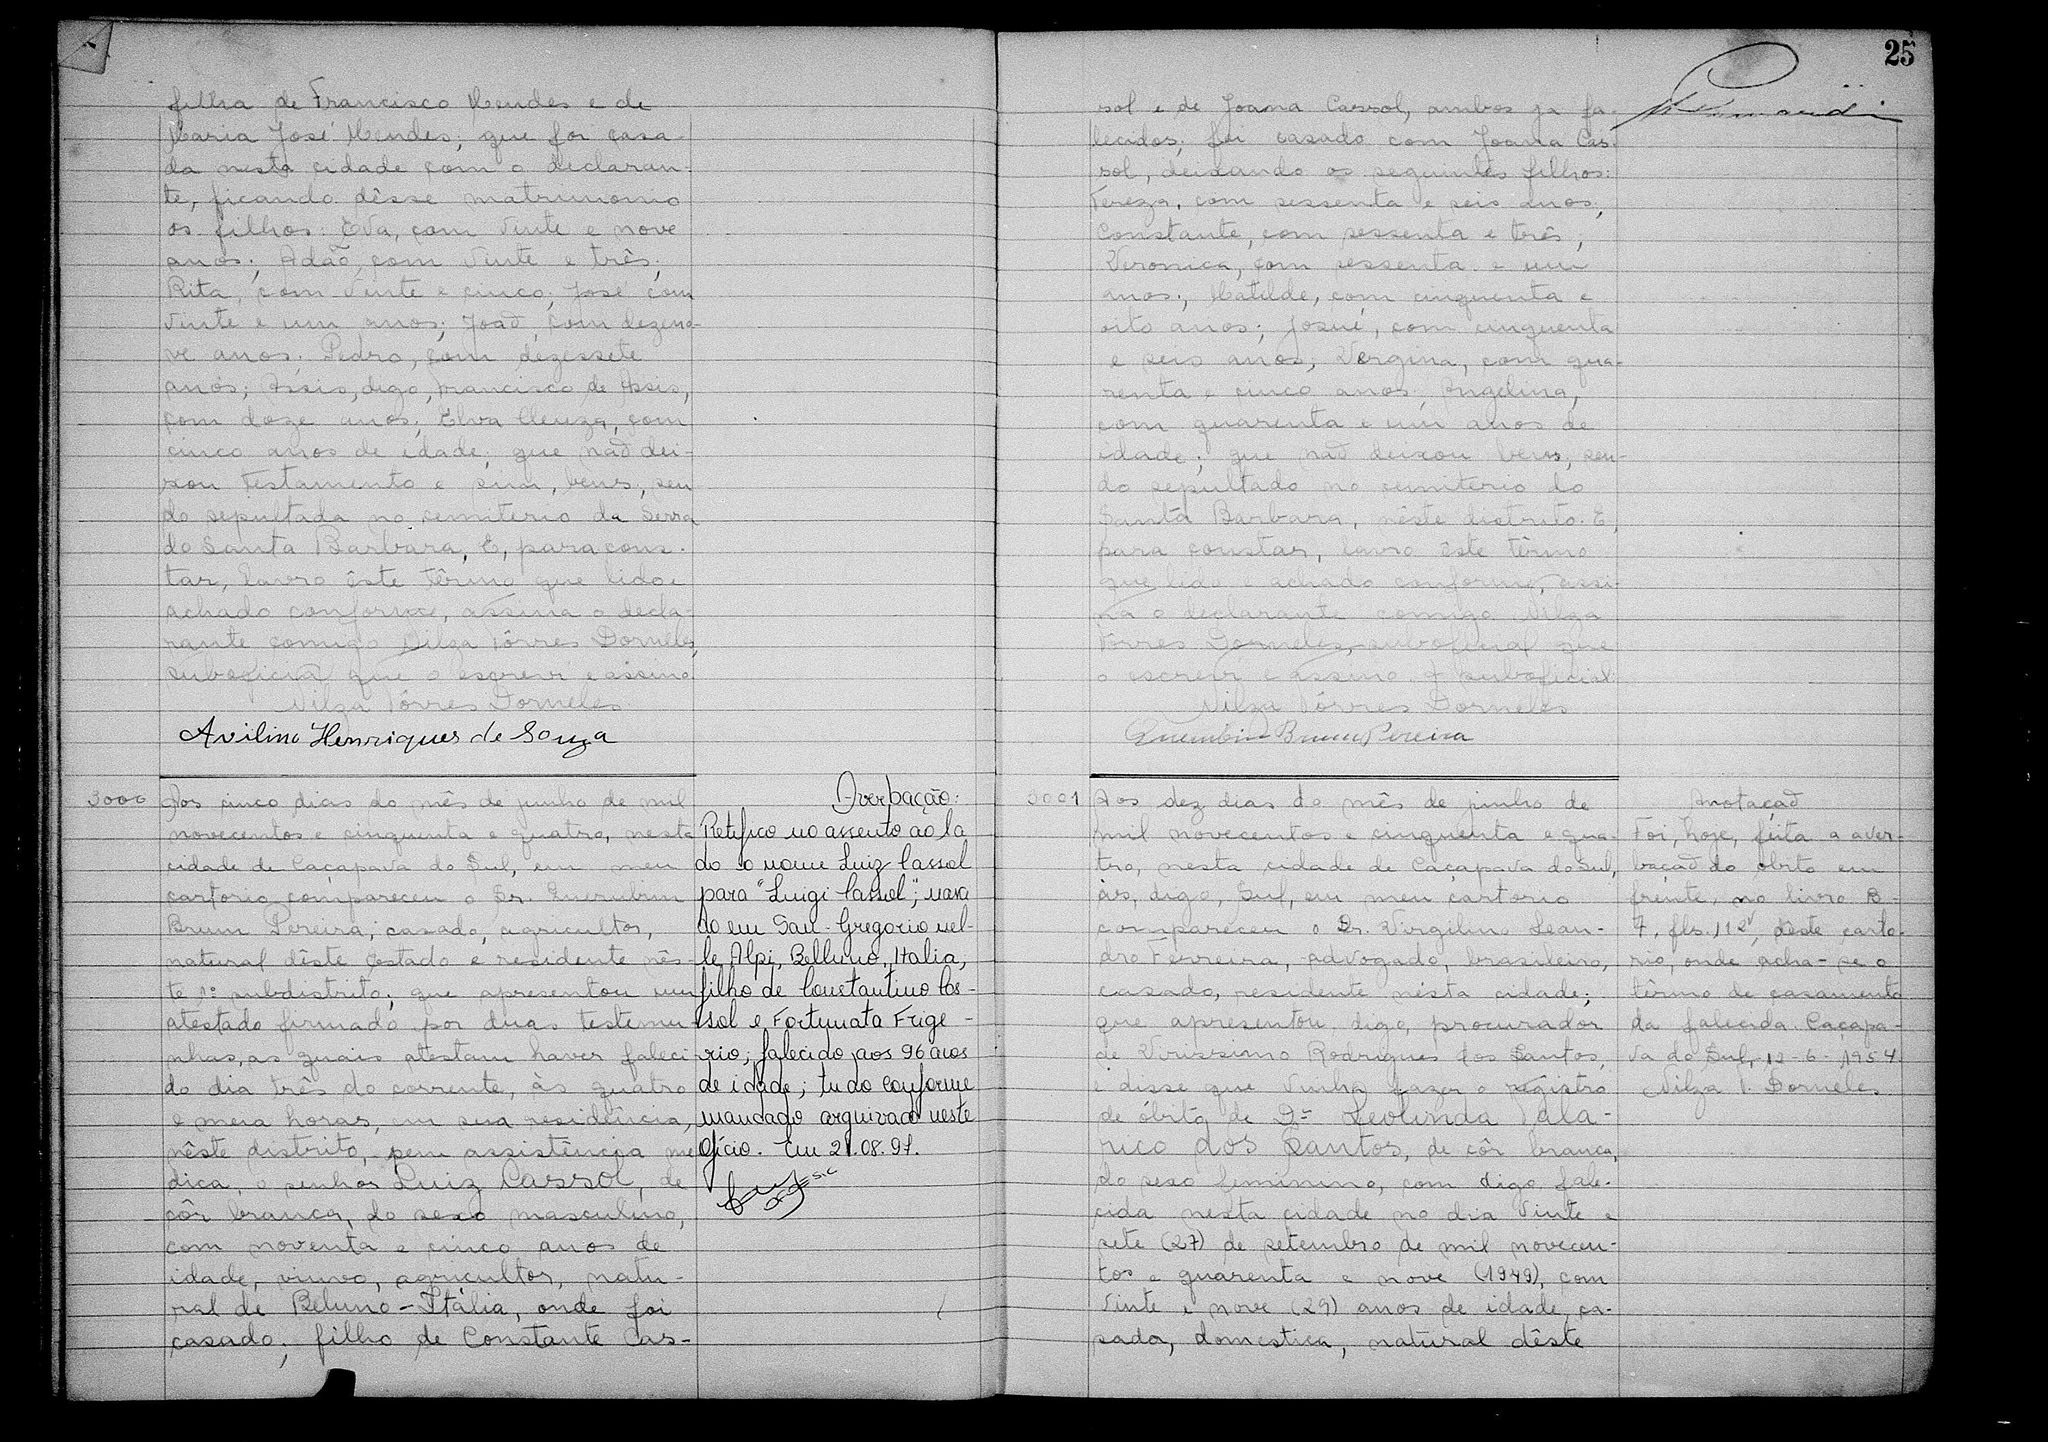 filha de Francisco Mendes e de
Maria José Mendes; que foi casa-
da nesta cidade com o declaran-
te, ficando dêsse matrimonio
os filhos: Eva, com vinte e nove
anos; Adão, com vinte e três;
Rita, com vinte e cinco; José com
vinte e um anos; João, com dezeno-
ve anos; Pedro, com dezessete
anos; Assis, digo, Francisco de Assis,
com doze anos; Elva Cleuza, com
cinco anos de idade; que não dei-
xou testamento e sim, bens, sen
do sepultada no cemiterio da Serra
do Santa Barbara, E, para cons-
tar, lavro êste têrmo que lido e
achado conforme, assina o decla-
rante comigo Nilza Tôrres Dorneles,
suboficial que o escrevi e assino
Nilza Tôrres Dorneles
Avilino Henriques de Souza
3000
Aos cinco dias do mês de junho de mil
novecentos e cinquenta e quatro, nesta
cidade de Caçapava do Sul, em meu
cartorio compareceu o Sr. Querubim
Brum Pereira; casado, agricultor,
natural dêste estado e residente nês-
te 1º subdistrito; que apresentou um
atestado firmado por duas testemu-
nhas, as quais atestam haver faleci
do dia três do corrente, às quatro
e meia horas, em sua residência,
nêste distrito, sem assistência me
dica, o senhor Luiz Cassol, de
côr branca, do sexo masculino,
com noventa e cinco anos de
idade, viuvo, agricultor, natu-
ral de Beluno-Itália, onde foi
casado; filho de Constante Cas-
Averbação:
Retifico no assento ao la
do o nome Luiz Cassol
para "Luigi Cassol"; nasci
do em San-Gregorio nel-
le Alpi, Belluno, Italia,
filho de Constantino Cas-
sol e Fortunata Frige-
rio; falecido aos 96 anos
de idade; tudo conforme
mandado arquivado neste
Ofício. Em 21.08.97.
25
sol e de Joana Cassol, ambos ja fa-
lecidos; foi casado com Joana Cas-
sol, deixando os seguintes filhos:
Tereza, com sessenta e seis anos;
Constante, com sessenta e três;
Veronica, com sessenta e um
anos; Matilde, com cinquenta e
oito anos; Josué, com cinquenta
e seis anos; Vergina, com qua-
renta e cinco anos; Angelina,
com quarenta e um anos de
idade; que não deixou bens, sen-
do sepultado no cemiterio do
Santa Barbara, nêste distrito. E,
para constar, lavro êste têrmo
que lido e achado conforme, assi-
na o declarante comigo Nilza
Torres Dorneles, suboficial que
o escrevi e assino. A suboficial:
Nilza Tôrres Dorneles
Querubim Brum Pereira
3001
Aos dez dias do mês de junho de
mil novecentos e cinquenta e qua-
tro, nesta cidade de Caçapava do Sul,
às, digo, Sul, em meu cartorio
compareceu o Dr. Virgilino Lean-
dro Ferreira, advogado, brasileiro,
casado, residente nésta cidade;
que apresentou, digo, procurador
de Virissimo Rodrigues dos Santos,
e disse que vinha fazer o registro
de óbito de Dª Leolinda Tala-
rico dos Santos, de côr branca,
do sexo feminino, com digo, fale-
cida nesta cidade no dia vinte e
sete (27) de setembro de mil novecen-
tos e quarenta e nove (1949), com
vinte e nove (29) anos de idade, ca-
sada, domestica, natural dêste
Anotação
Foi, hoje, feita a aver-
bação do óbito em
frente, no livro B-
7, fls. 112v, dêste carto-
rio, onde acha-se o
têrmo de casamento
da falecida. Caçapa-
va do Sul, 12-6-1954
Nilza T. Dorneles